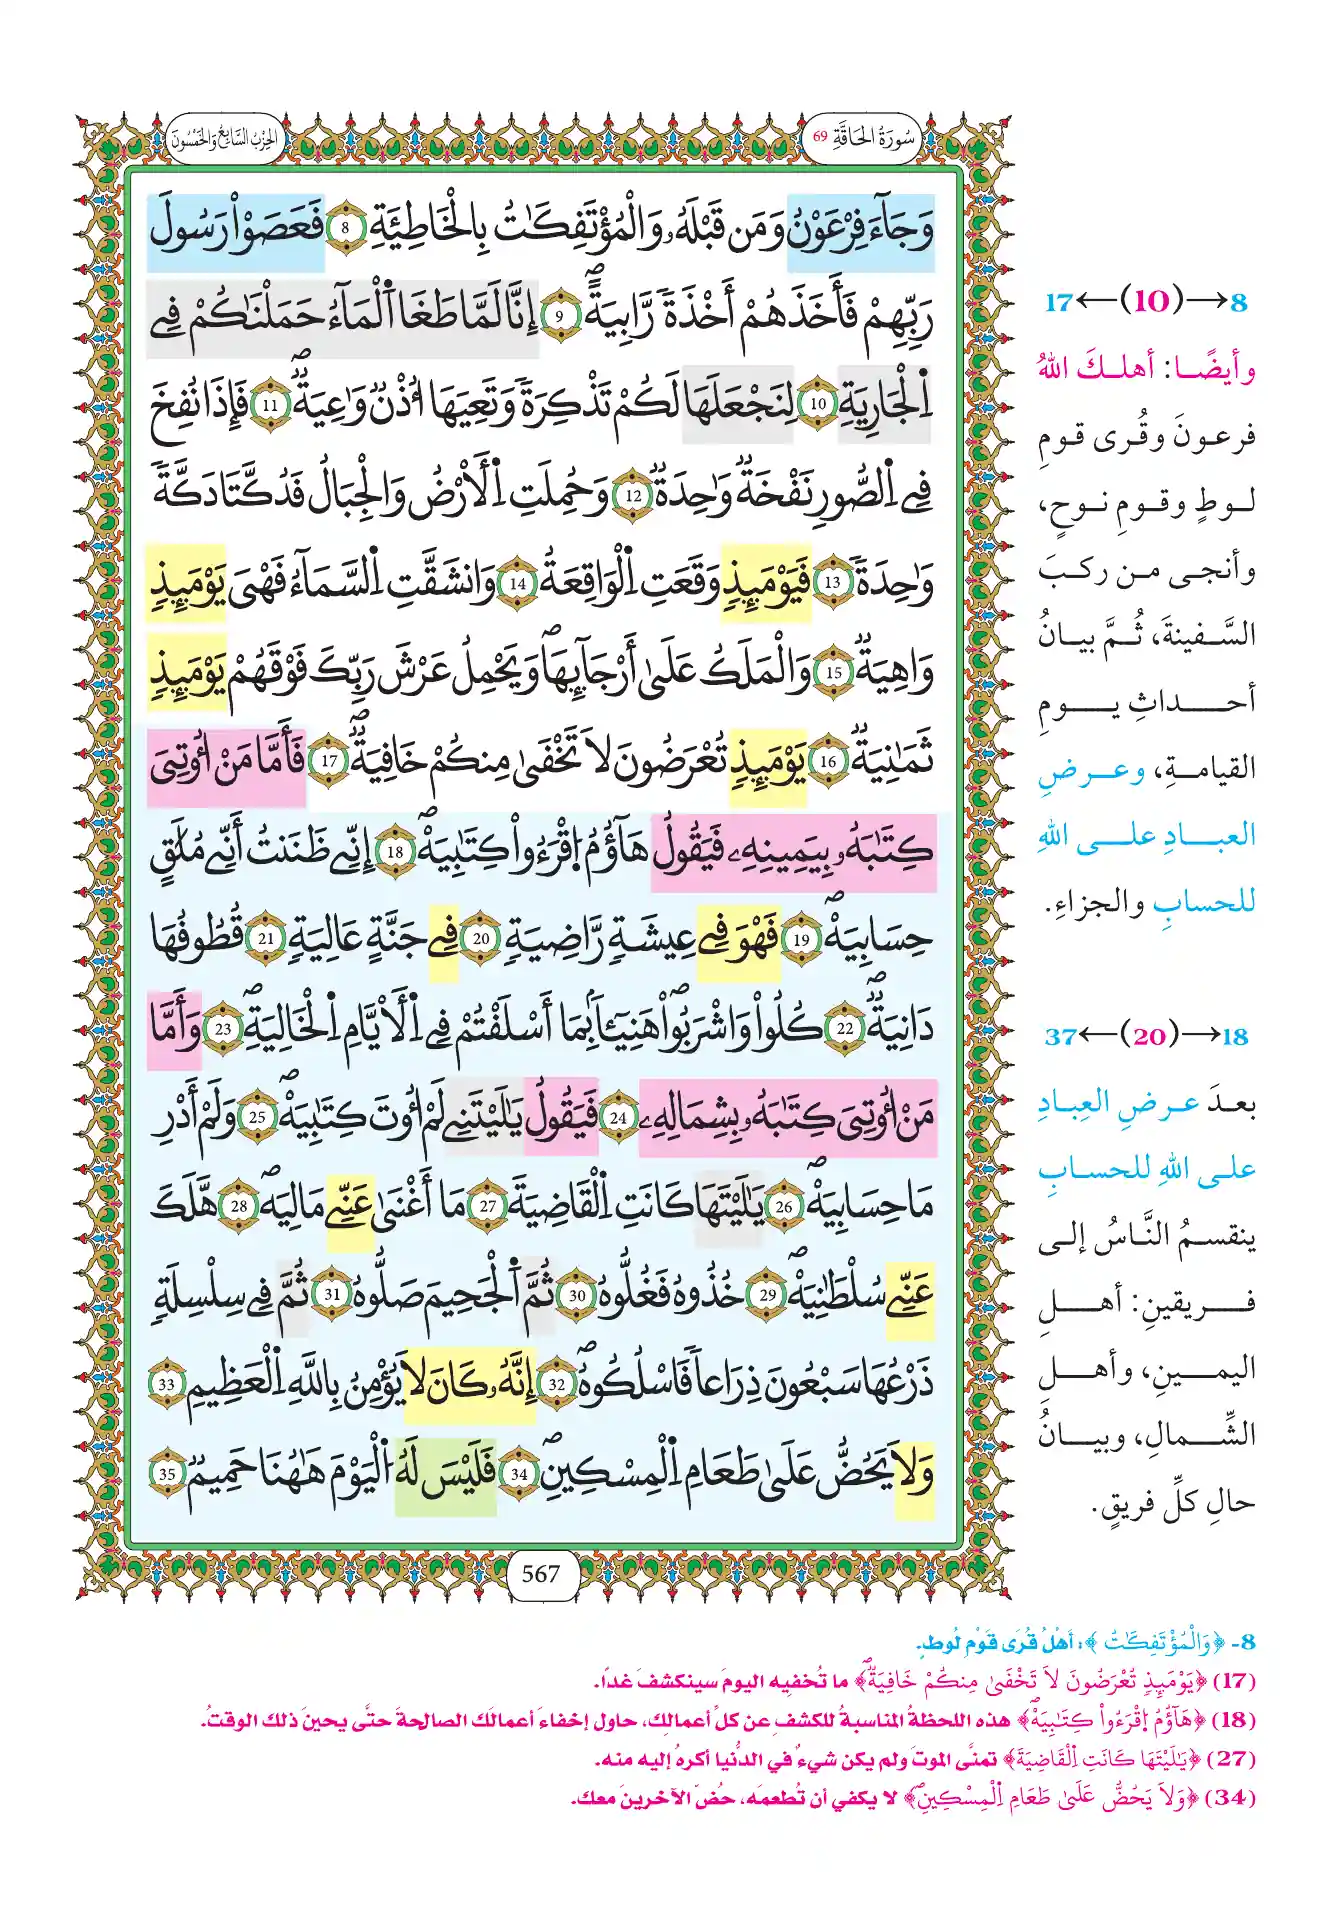 سُورَةُ الحَاقَّةِ 69
الحِزْبُ السَّابِعُ وَالخَمْسُونَ
وَجَآءَ فِرْعَوْنُ وَمَن قَبْلَهُۥ وَالْمُؤْتَفِكَٰتُ بِالْخَاطِيَةِ 8 فَعَصَوْاْ رَسُولَ
رَبِّهِمْ فَأَخَذَهُمْ أَخْذَةً رَّابِيَةًۖ 9 اِنَّا لَمَّا طَغَا اَ۬لْمَآءُ حَمَلْنَٰكُمْ فِے
اِ۬لْجَارِيَةِ 10 لِنَجْعَلَهَا لَكُمْ تَذْكِرَةً وَتَعِيَهَا أُذْنٌ وَٰعِيَةٌۖ 11 فَإِذَا نُفِخَ
فِے اِ۬لصُّورِ نَفْخَةٌ وَٰحِدَةٌ 12 وَحُمِلَتِ اِ۬لَارْضُ وَالْجِبَالُ فَدُكَّتَا دَكَّةً
وَٰحِدَةً 13 فَيَوْمَئِذٍ وَقَعَتِ اِ۬لْوَاقِعَةُ 14 وَانشَقَّتِ اِ۬لسَّمَآءُ فَهْىَ يَوْمَئِذٍ
وَاهِيَةٌ 15 وَالْمَلَكُ عَلَىٰٓ أَرْجَآئِهَاۖ وَيَحْمِلُ عَرْشَ رَبِّكَ فَوْقَهُمْ يَوْمَئِذٍ
ثَمَٰنِيَةٌ 16 يَوْمَئِذٍ تُعْرَضُونَ لَا تَخْفَىٰ مِنكُمْ خَافِيَةٌۖ 17 فَأَمَّا مَنُ ا۟وتِيَ
كِتَٰبَهُۥ بِيَمِينِهِۦ فَيَقُولُ هَآؤُمُ اُ۪قْرَءُواْ كِتَٰبِيَهْۖ 18 إِنِّے ظَنَنتُ أَنِّے مُلَٰقٍ
حِسَابِيَهْۖ 19 فَهْوَ فِے عِيشَةٍ رَّاضِيَةٍ 20 فِے جَنَّةٍ عَالِيَةٍ 21 قُطُوفُهَا
دَانِيَةٌۖ 22 كُلُواْ وَاشْرَبُواْ هَنِيٓـٔاَۢ بِمَآ أَسْلَفْتُمْ فِے اِ۬لَايَّامِ اِ۬لْخَالِيَةِۖ 23 وَأَمَّا
مَنُ ا۟وتِيَ كِتَٰبَهُۥ بِشِمَالِهِۦ 24 فَيَقُولُ يَٰلَيْتَنِے لَمُ ا۟وتَ كِتَٰبِيَهْۖ 25 وَلَمَ اَدْرِ
مَا حِسَابِيَهْۖ 26 يَٰلَيْتَهَا كَانَتِ اِ۬لْقَاضِيَةَ 27 مَآ أَغْنَىٰ عَنِّے مَالِيَهْۖ 28 هَّلَكَ
عَنِّے سُلْطَٰنِيَهْۖ 29 خُذُوهُ فَغُلُّوهُ 30 ثُمَّ اَ۬لْجَحِيمَ صَلُّوهُ 31 ثُمَّ فِے سِلْسِلَةٍ
ذَرْعُهَا سَبْعُونَ ذِرَاعاً فَاسْلُكُوهُۖ 32 إِنَّهُۥ كَانَ لَا يُؤْمِنُ بِاللَّهِ اِ۬لْعَظِيمِ 33
وَلَا يَحُضُّ عَلَىٰ طَعَامِ اِ۬لْمِسْكِينِۖ 34 فَلَيْسَ لَهُ اُ۬لْيَوْمَ هَٰهُنَا حَمِيمٌ 35
567
8→(10)←17
وأيضًا: أهلكَ اللهُ
فرعونَ وقُرى قومِ
لوطٍ وقومِ نوحٍ،
وأنجى من ركبَ
السَّفينةَ، ثُمَّ بيانُ
أحداثِ يومِ
القيامةِ، وعرضِ
العبادِ على اللهِ
للحسابِ والجزاءِ.
18→(20)←37
بعدَ عرضِ العِبادِ
على اللهِ للحسابِ
ينقسمُ النَّاسُ إلى
فريقينِ: أهلِ
اليمينِ، وأهلِ
الشِّمالِ، وبيانُ
حالِ كلِّ فريقٍ.
8- ﴿وَالْمُؤْتَفِكَٰتُ﴾: أهْلُ قُرَى قَوْمِ لُوطٍ.
(17) ﴿يَوْمَئِذٍ تُعْرَضُونَ لَا تَخْفَىٰ مِنكُمْ خَافِيَةٌۖ﴾ ما تُخفيه اليومَ سينكشفُ غدًا.
(18) ﴿هَآؤُمُ اُ۪قْرَءُواْ كِتَٰبِيَهْۖ﴾ هذه اللحظةُ المناسبةُ للكشفِ عن كلِّ أعمالِك، حاول إخفاءَ أعمالك الصالحةَ حتَّى يحينَ ذلك الوقتُ.
(27) ﴿يَٰلَيْتَهَا كَانَتِ اِ۬لْقَاضِيَةَ﴾ تمنَّى الموتَ ولم يكن شيءٌ في الدُّنيا أكرهُ إليه منه.
(34) ﴿وَلَا يَحُضُّ عَلَىٰ طَعَامِ اِ۬لْمِسْكِينِۖ﴾ لا يكفي أن تُطعمَه، حُضّ الآخرينَ معك.